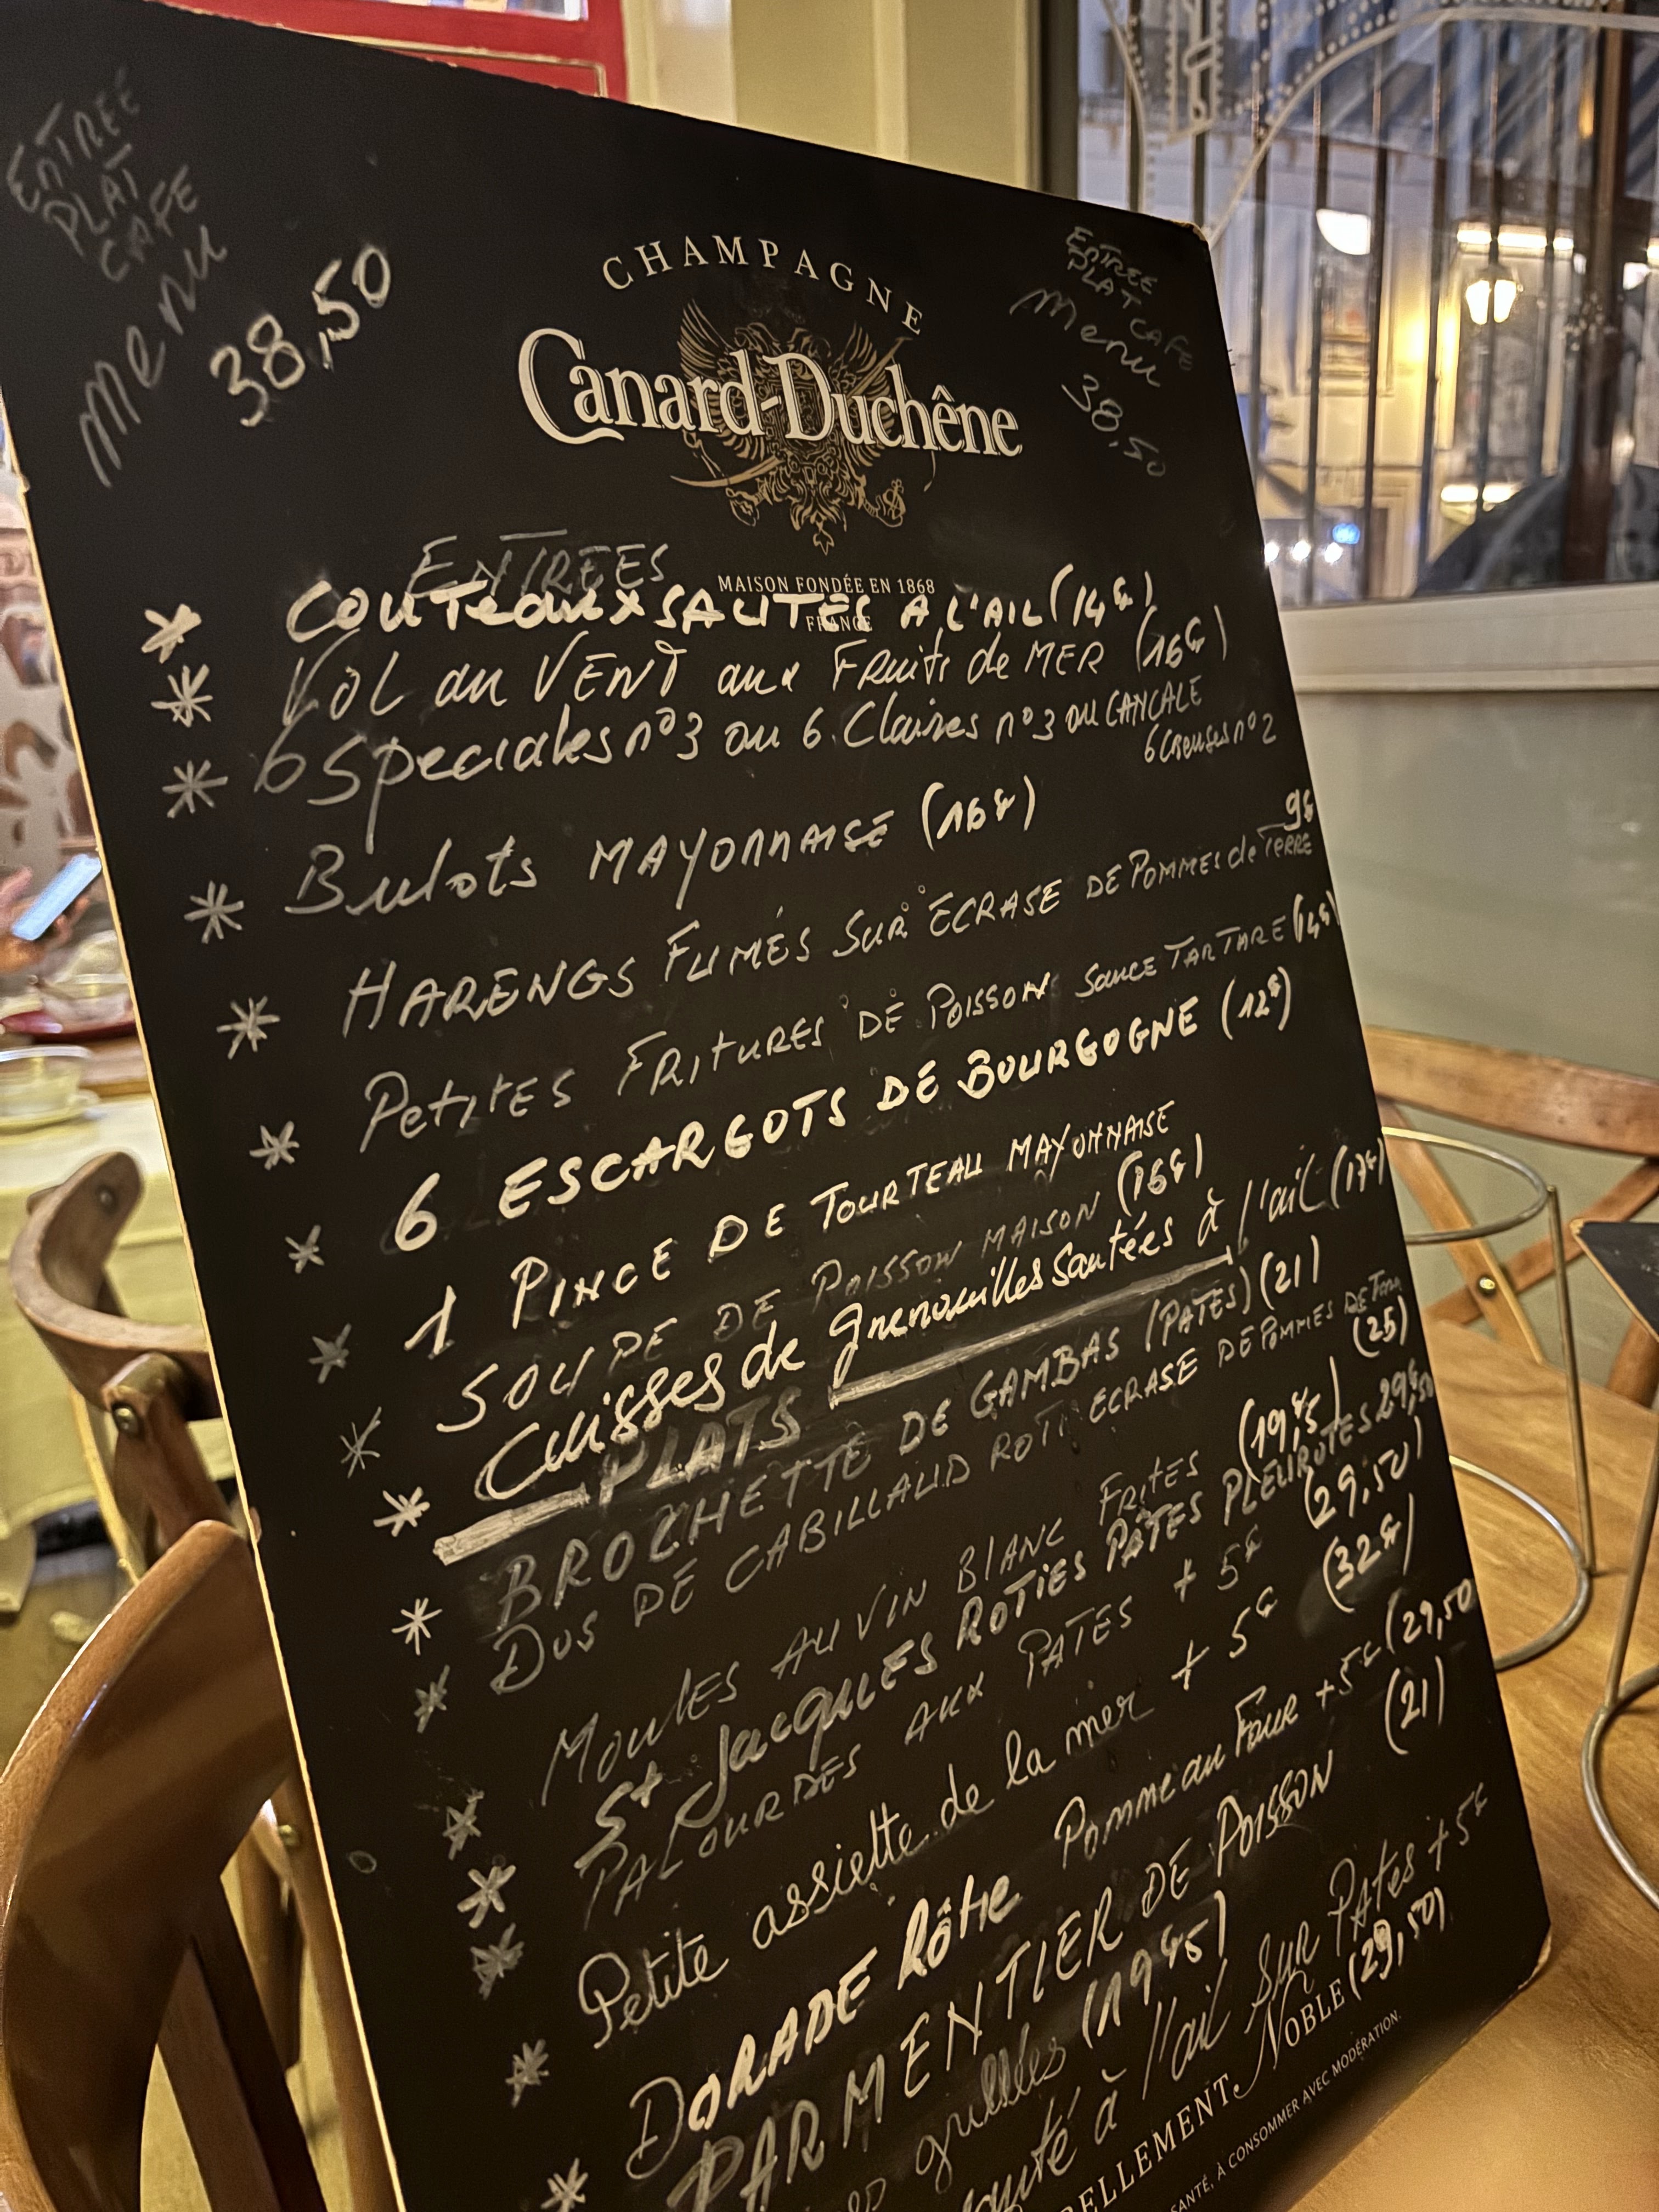 ENTREE
PLAT
CAFE
Menu
38,50
CHAMPAGNE
Canard-Duchêne
MAISON FONDÉE EN 1868
FRANCE
ENTREE
PLAT CAFE
Menu
38,50
ENTREES
* COUTeaux SAUTES A L'AIL (14€)
* VOL au VENT aux FRuits de MER (16€)
* 6 Speciales n°3 ou 6 Claires n°3 ou CANCALE
6 Creuses n°2
* Bulots MAYONNAISE (16€)
9€
* HARENGS FUMÉS SUR ECRASE DE POMMES de TERRE
* Petites FRITURES DE POISSON Sauce TARTARE (14€)
* 6 ESCARGOTS DE BOURGOGNE (12€)
* 1 PINCE DE TOURTEAU MAYONNAISE
* SOUPE DE POISSON MAISON (16€)
* Cuisses de grenouilles sautées à l'ail (17€)
PLATS
* BROCHETTE DE GAMBAS (PATES) (21)
* DOS DE CABILLAUD ROTI ECRASE DE POMMES DE
(25)
* Moules AU VIN BLANC FRITES (19,45)
* St Jacques ROTIES PÂTES PLEUROTES 29€,50
* PALOURDES AUX PATES + 5€ (29,50)
* Petite assiette de la mer + 5€ (32€)
* DORADE Rôtie Pomme au Four + 5€ (29,50
PARMENTIER DE POISSON (21)
grillées (19€45)
à l'ail SUR PATES + 5€
NOBLE (29,50)
SANTÉ, À CONSOMMER AVEC MODÉRATION.